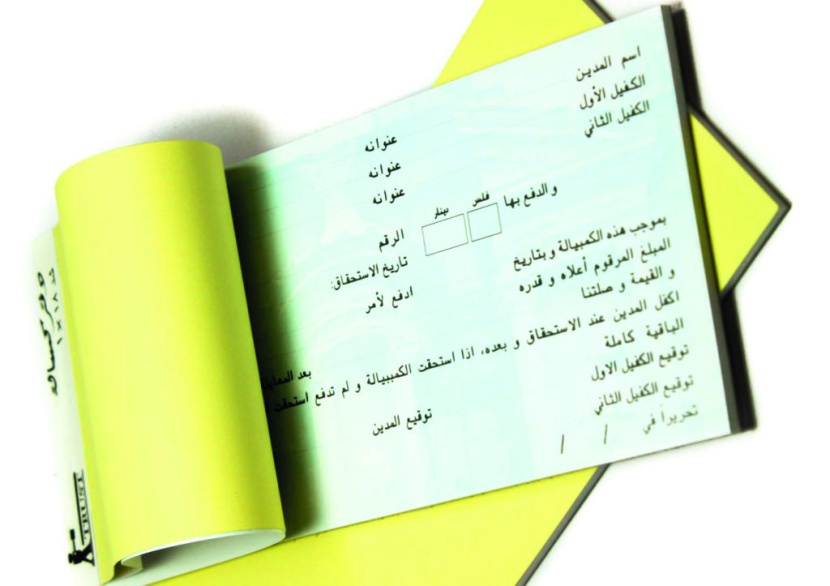 اسم المدين
الكفيل الأول عنوانه
الكفيل الثاني عنوانه
عنوانه
والدفع بها فلس دينار
الرقم
بموجب هذه الكمبيالة وبتاريخ تاريخ الاستحقاق:
المبلغ المرقوم أعلاه و قدره ادفع لأمر
و القيمة و صلتنا
اكفل المدين عند الاستحقاق و بعده، اذا استحقت الكمبيالة و لم تدفع استحقت
الباقية كاملة
توقيع الكفيل الاول
توقيع الكفيل الثاني توقيع المدين
تحريراً في / /
TRUST